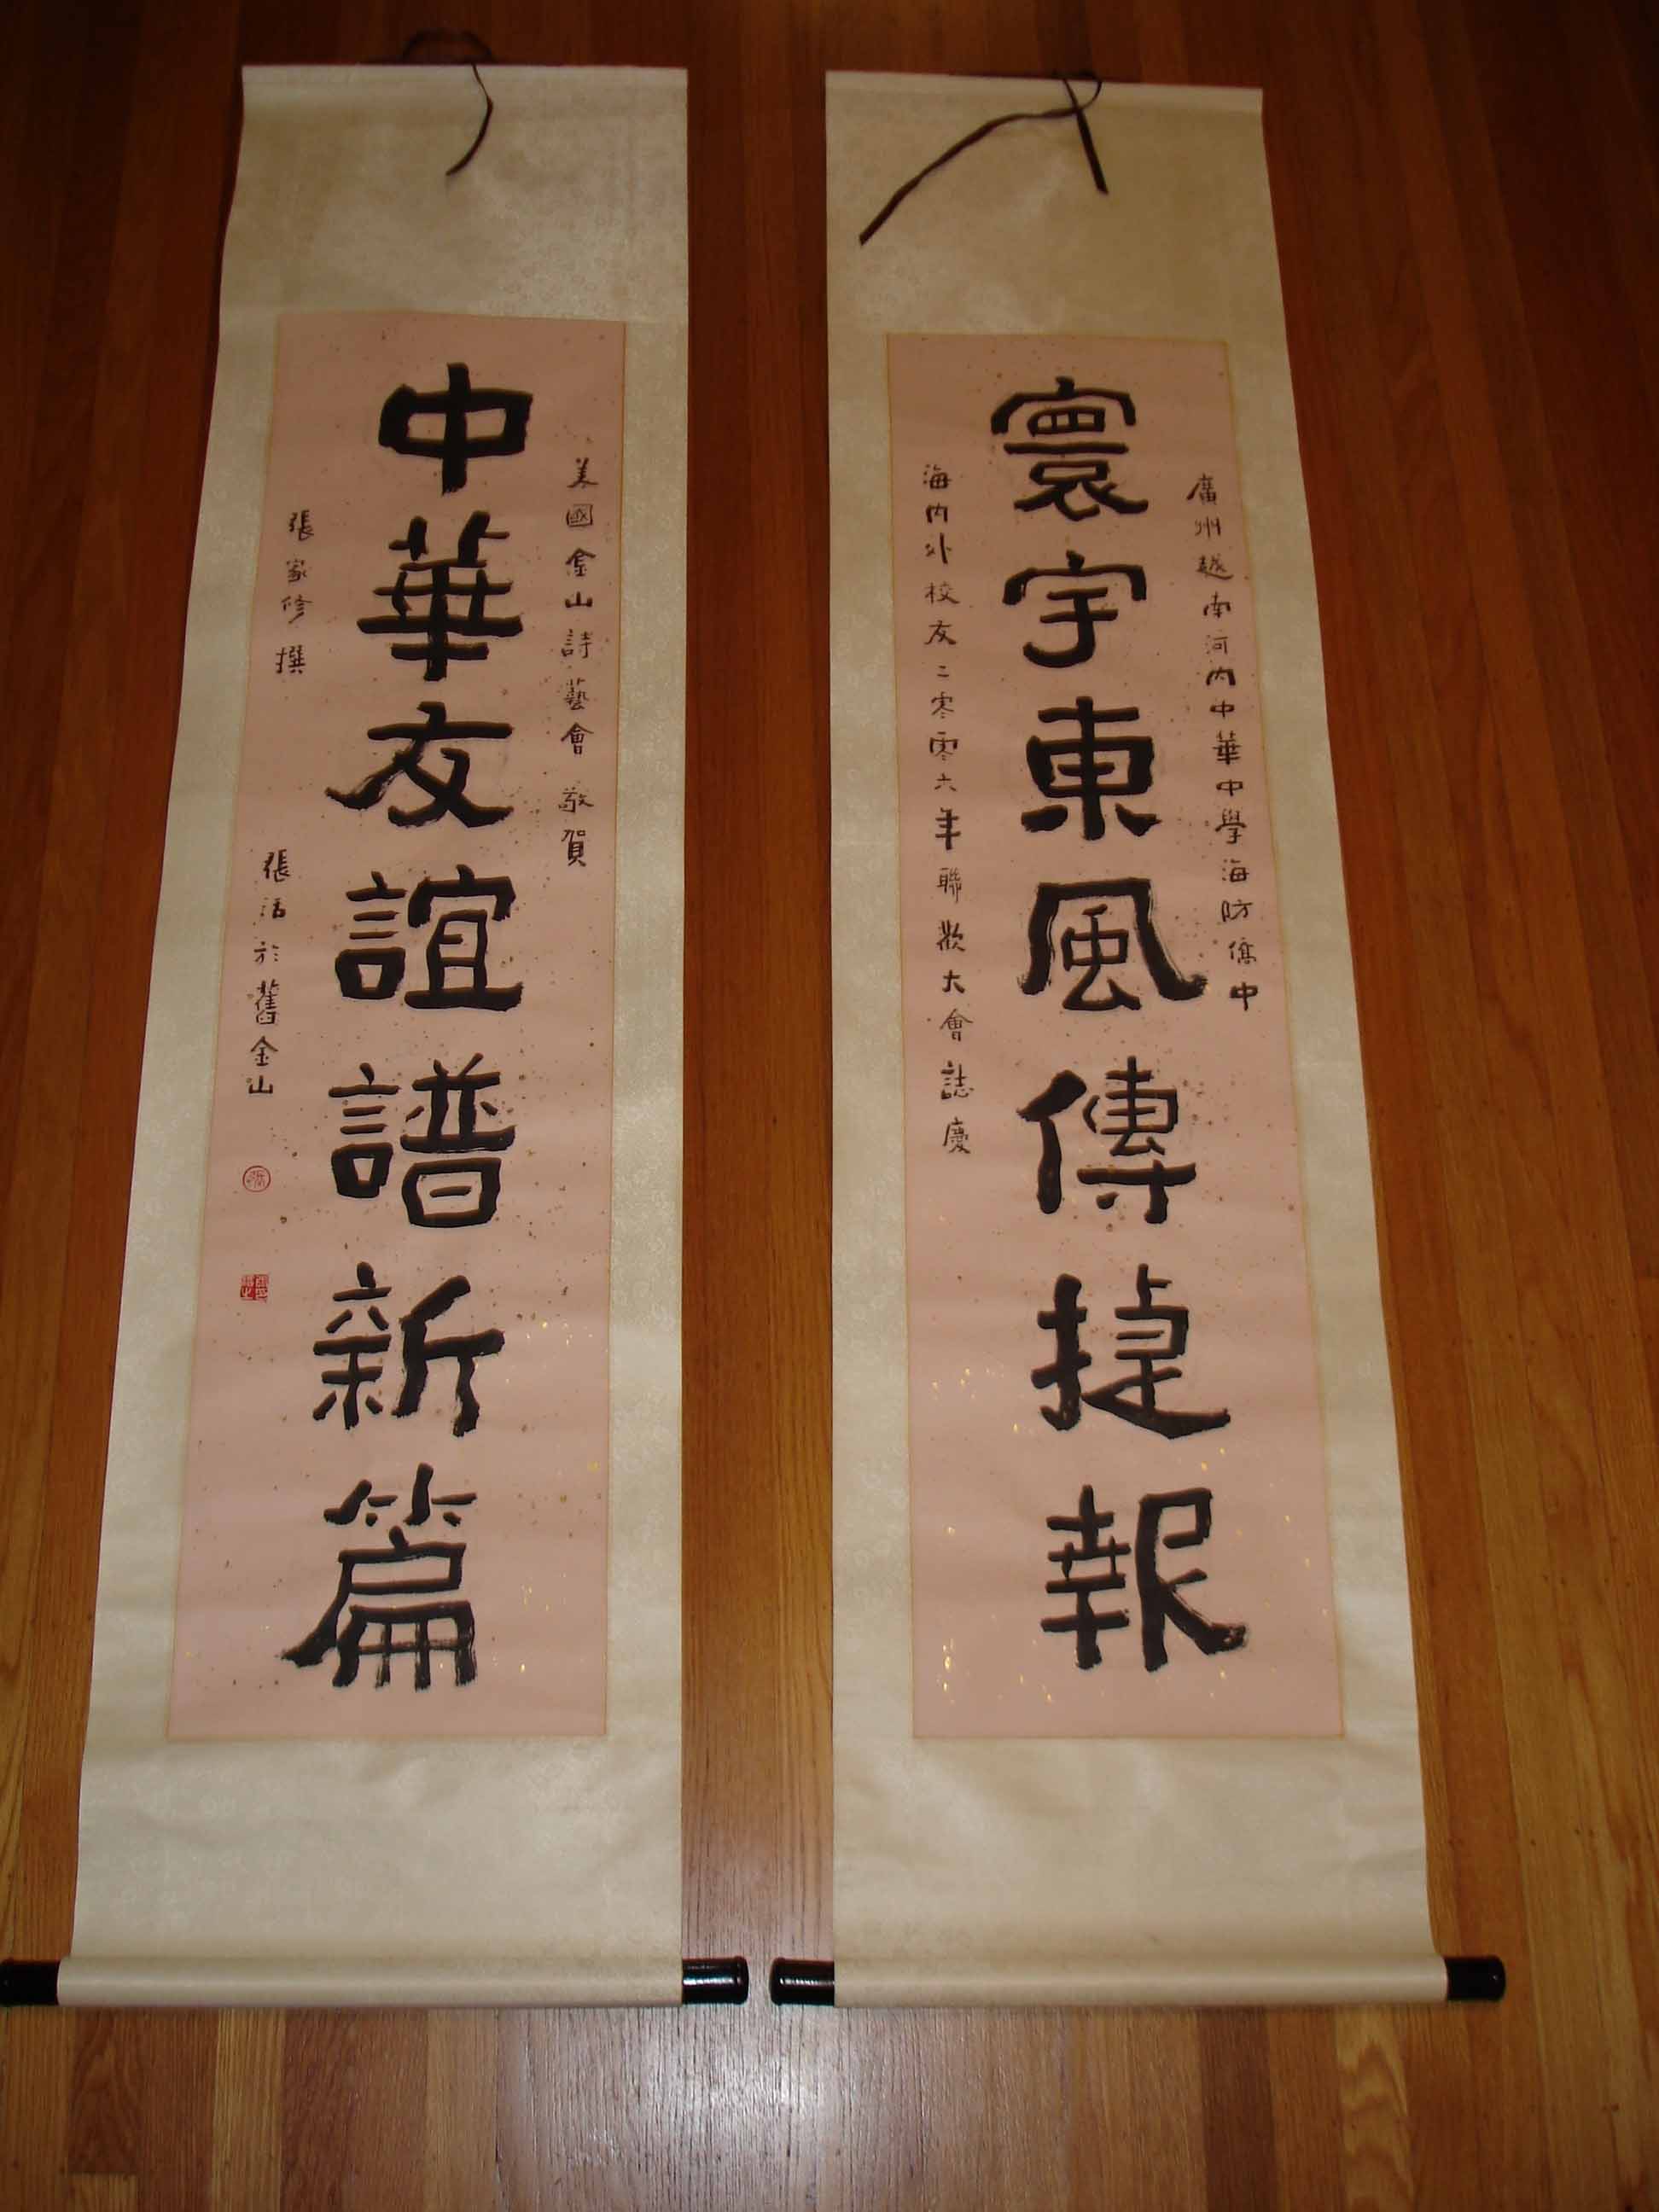 廣州越南河内中華中學海防僑中
寰宇東風傳捷報
海内外校友二零零六年聯歡大會誌慶
美國金山詩藝會 敬賀
中華友誼譜新篇
張家修 撰 張活於舊金山